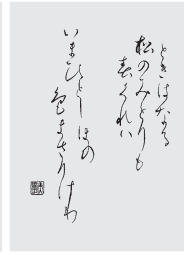 ときはなる
松のみとりも
春くれハ
いまひとしほの
色まさりけり